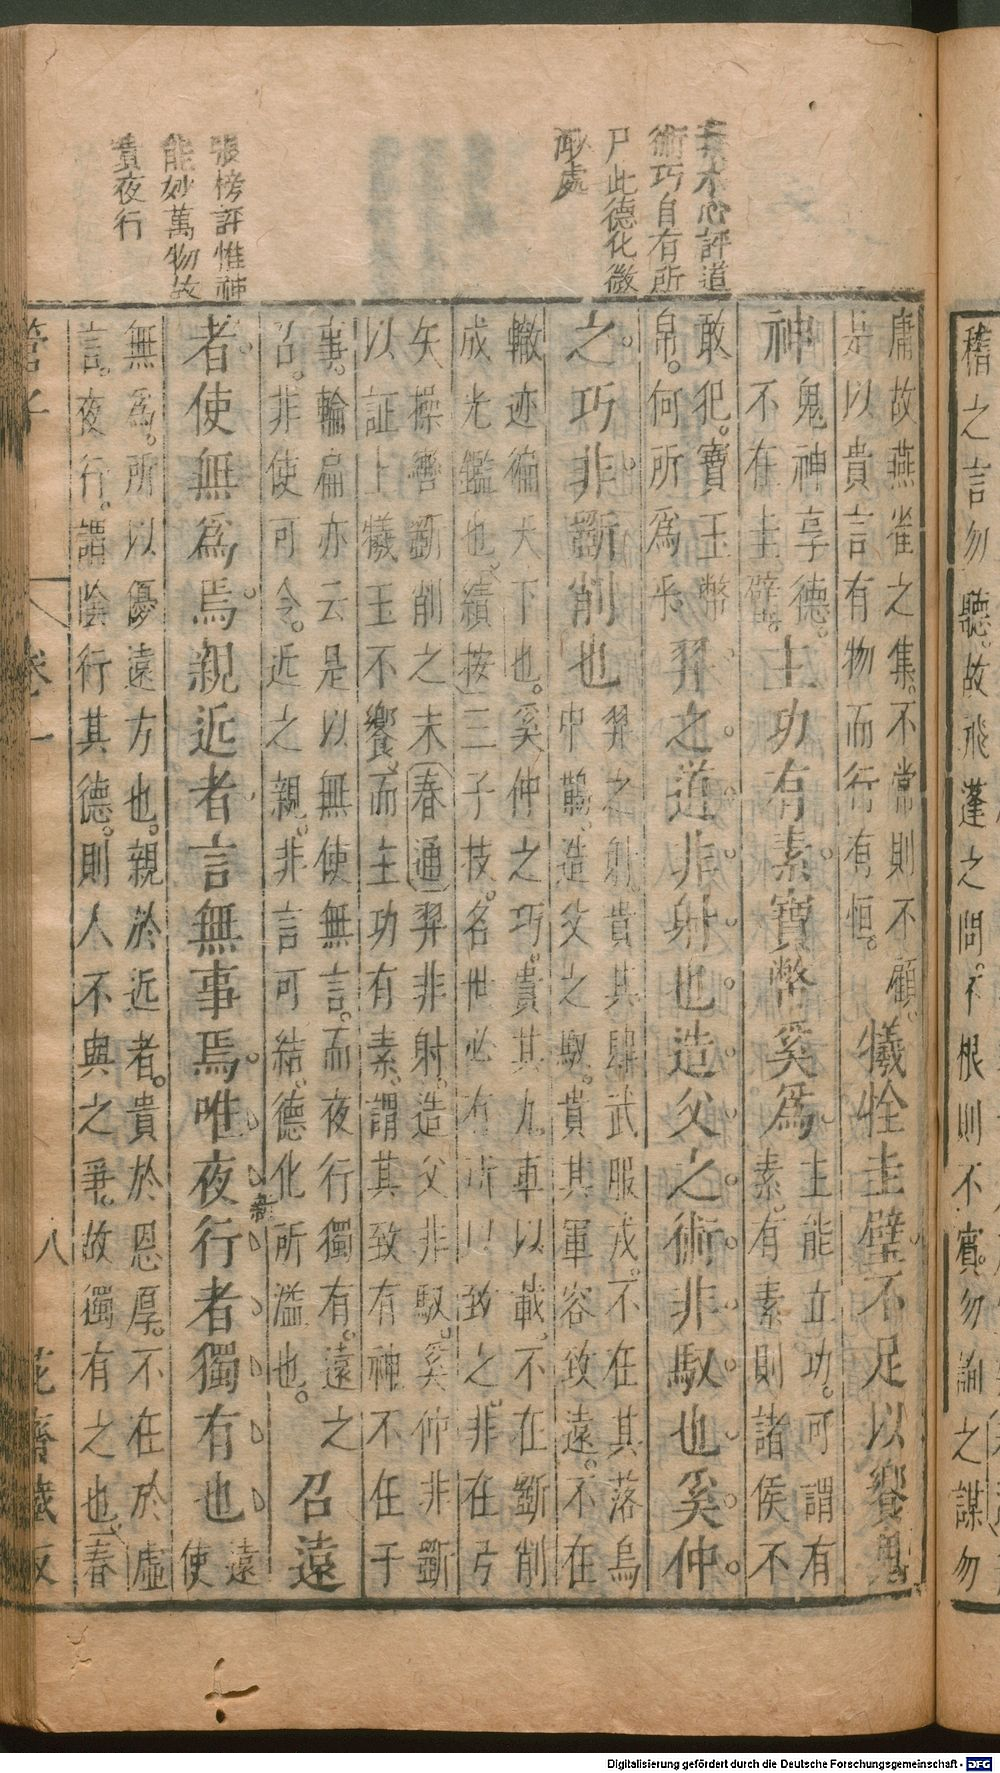 稽之言勿聽。故飛蓬之問。不根則不賓。勿詢之謀勿
評道
術巧自有所
尸此德化微
渺處
張榜評惟神
能妙萬物故
貴夜行
庸故燕雀之集。不常則不顧。
是以貴言有物而行有恒。
犧牷圭璧不足以饗鬼
神
鬼神享德。
不在圭璧。
主功有素寶幣奚爲
主能立功。可謂有
素。有素則諸侯不
敢犯。寶玉幣
帛。何所爲乎
羿之道非射也造父之術非馭也奚仲
之巧非斲削也
羿之射。貴其肆武服戎。不在其落烏
中鵰。造父之馭。貴其軍容致遠。不在
轍迹徧天下也。奚仲之巧。貴其九車以載。不在斲削
成光鑑也。績按三子技。名世必有所以致之。非在弓
矢操轡斲削之末春通羿非射。造父非馭。奚仲非斲
以証上犧玉不饗。而主功有素。謂其致有神不在于
事。輪扁亦云是以無使無言。而夜行獨有。遠之
召。非使可令。近之親。非言可結。德化所濫也。
召遠
者使無爲焉親近者言無事焉唯夜行者獨有也
遠
使
無爲。所以優遠方也。親於近者。貴於恩厚。不在於虛
言。夜行。謂陰行其德。則人不與之爭。故獨有之也春
管子
卷一
八
花齋藏板
Digitalisierung gefördert durch die Deutsche Forschungsgemeinschaft - DFG